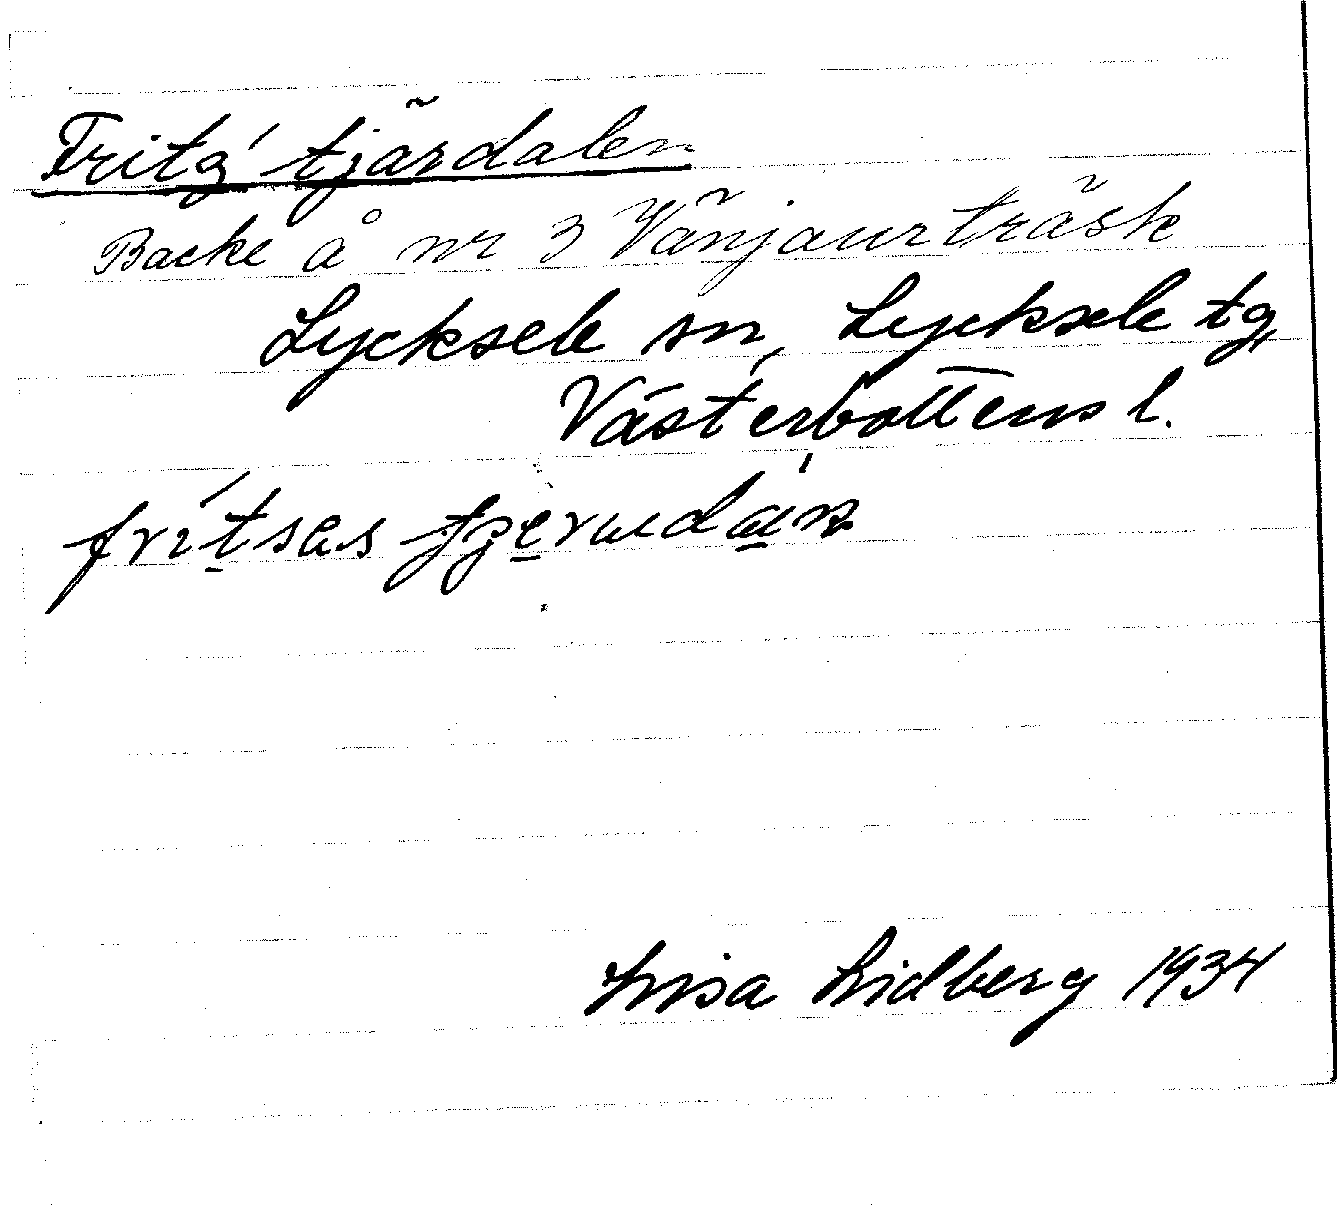 Fritz' tjärdalen
Backe å nr 3 Vänjaurträsk
Lycksele sn, Lycksele tg,
Västerbottens l.
Lisa Lidberg 1934